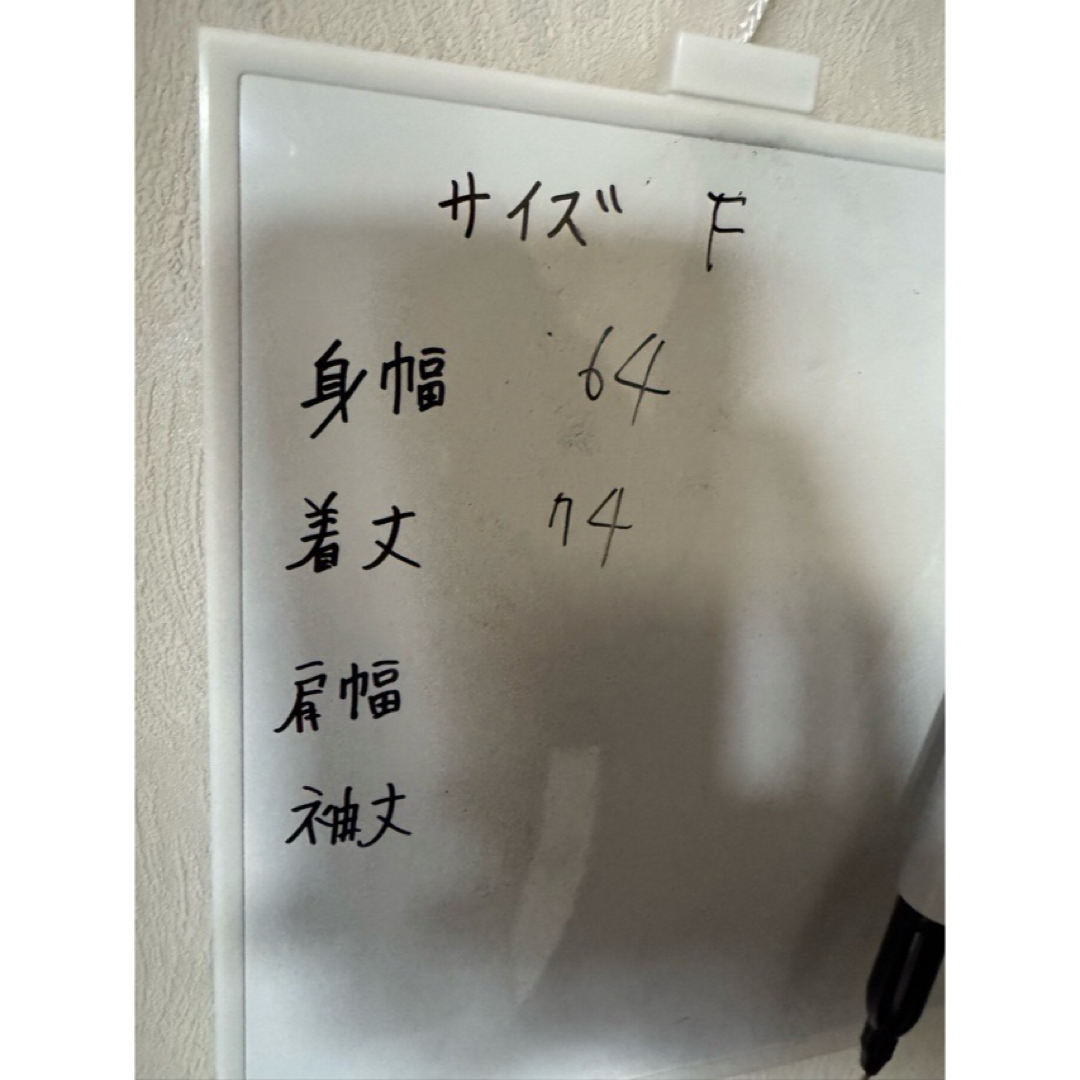 サイズ F
身幅 64
着丈 74
肩幅
袖丈